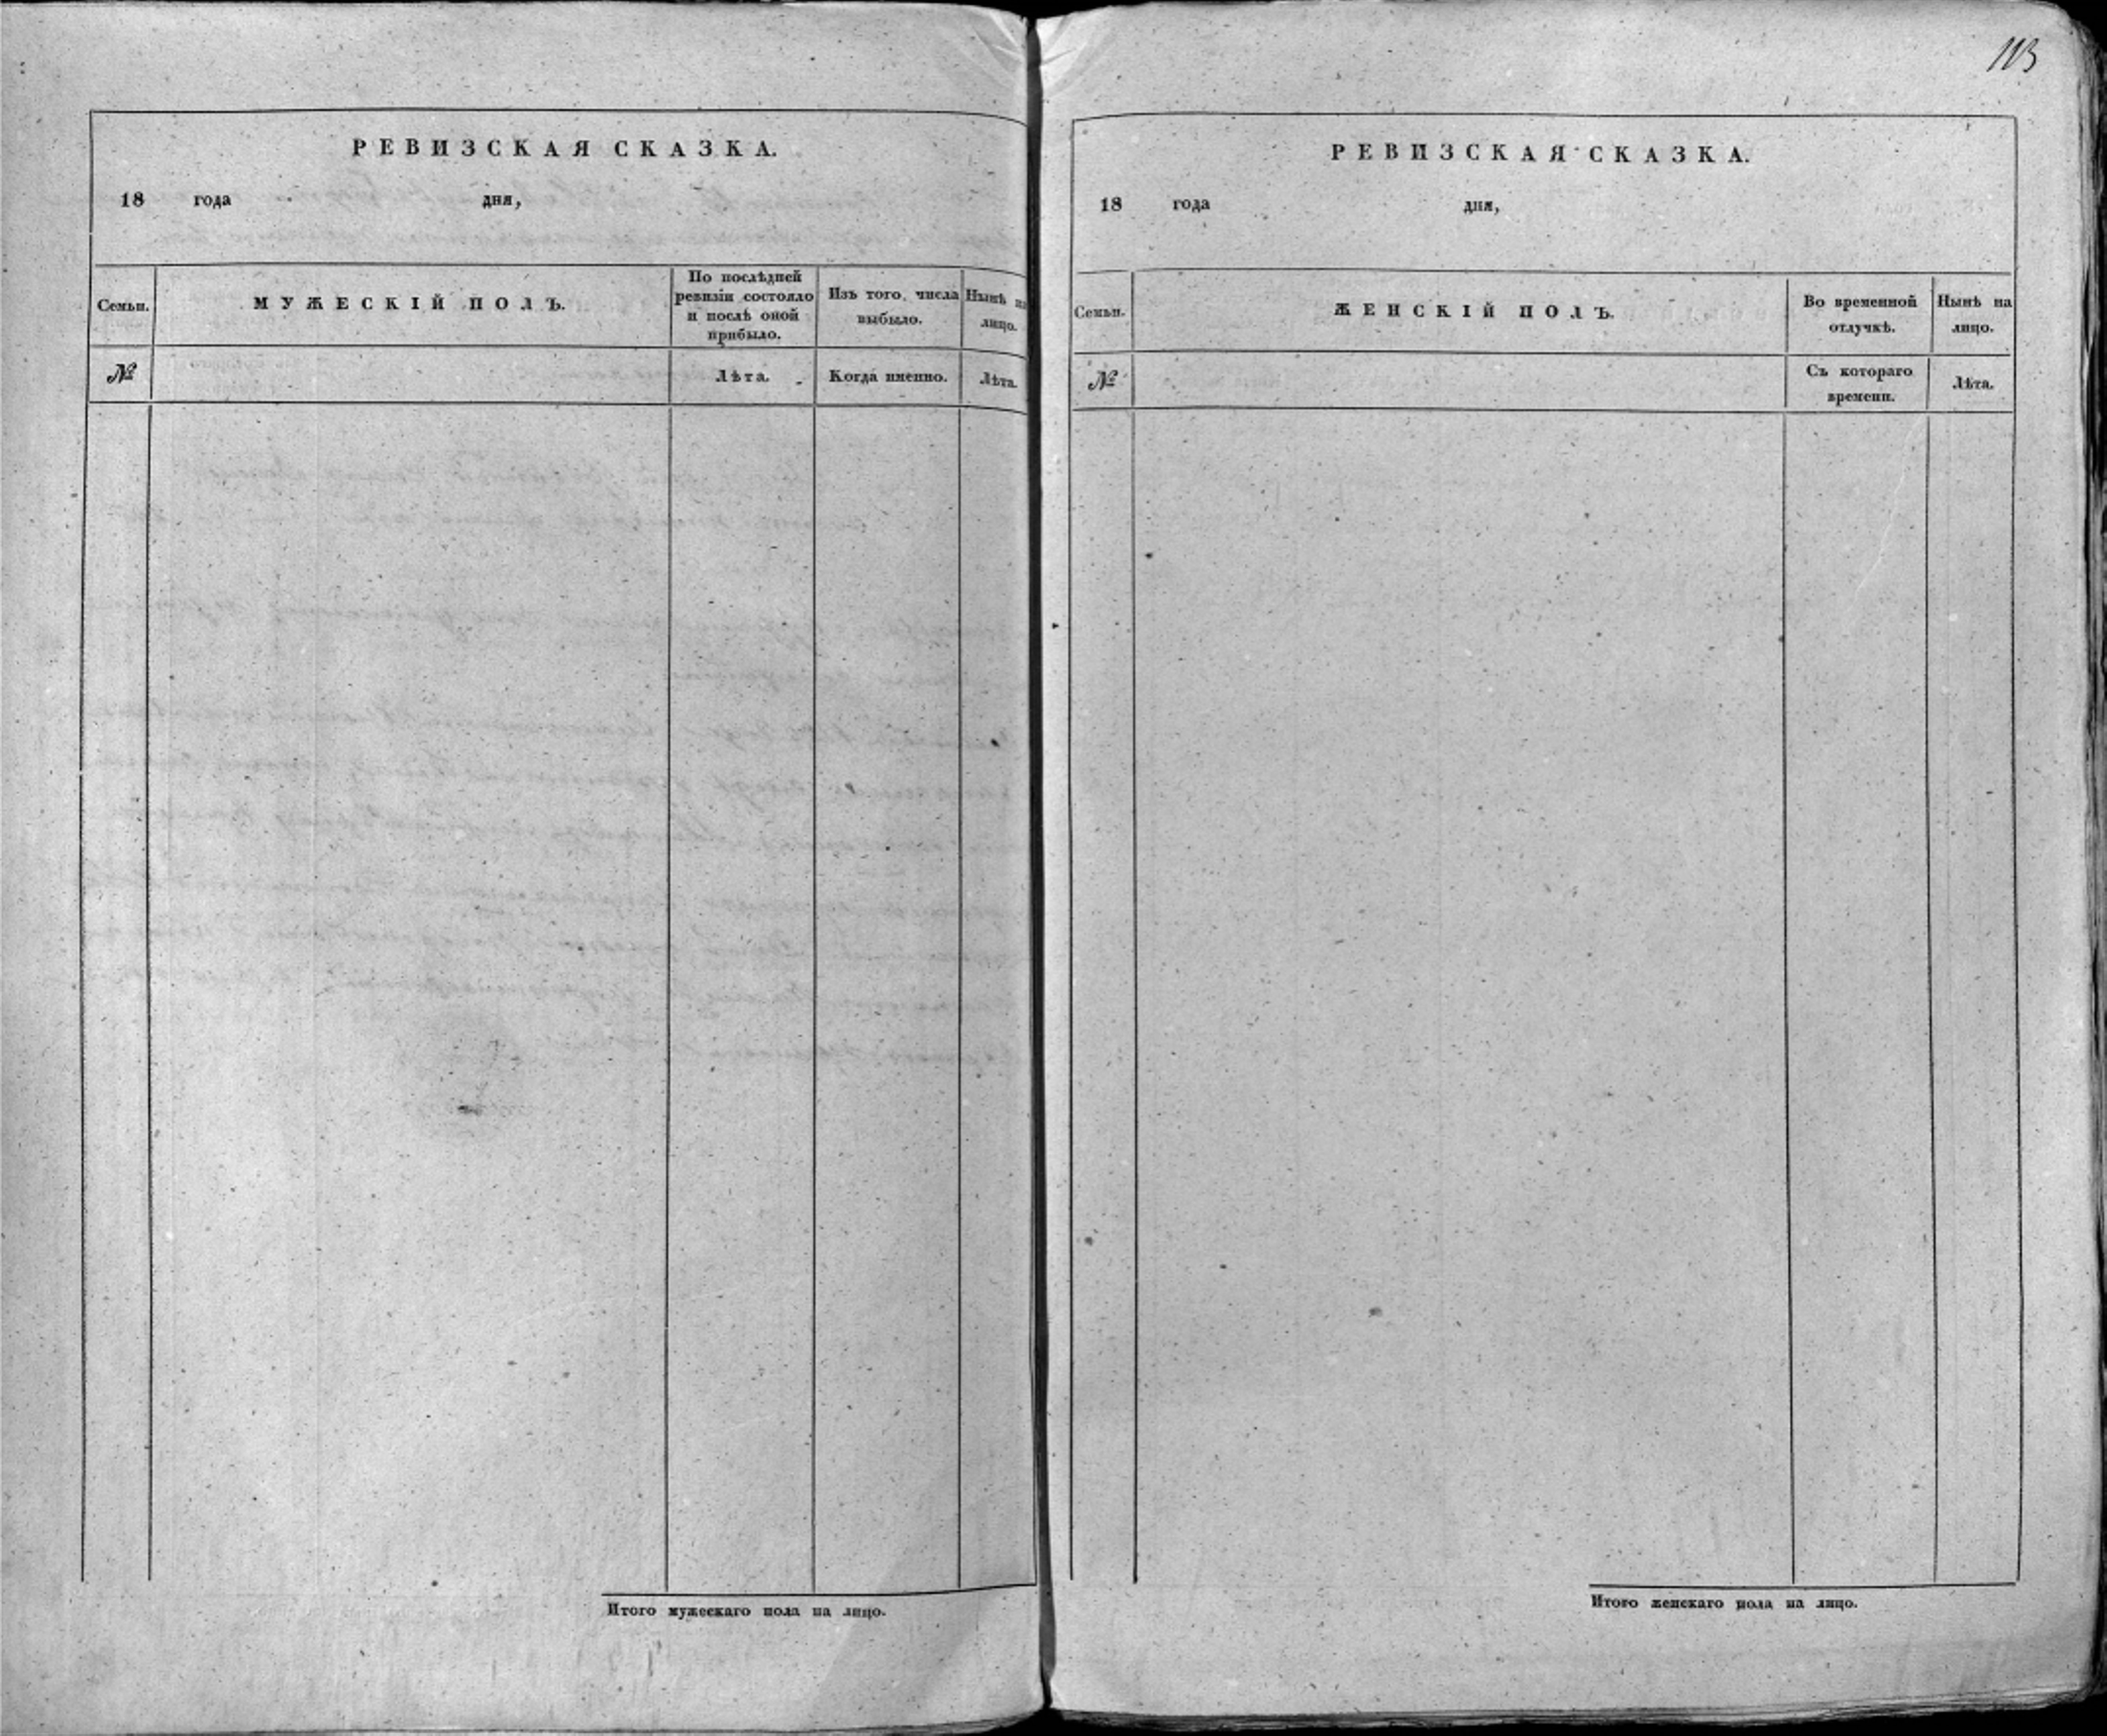 113
РЕВИЗСКАЯ СКАЗКА.
18 года дня,
Семьи.
МУЖЕСКІЙ ПОЛЪ.
По послѣдней
ревизіи состояло
и послѣ оной
прибыло.
Изъ того числа
выбыло.
Нынѣ на
лицо.
№
Лѣта.
Когда именно.
Лѣта.
Итого мужескаго пола на лицо.
РЕВИЗСКАЯ СКАЗКА.
18 года дня,
Семьи.
ЖЕНСКІЙ ПОЛЪ.
Во временной
отлучкѣ.
Нынѣ на
лицо.
№
Съ котораго
времени.
Лѣта.
Итого женскаго пола на лицо.